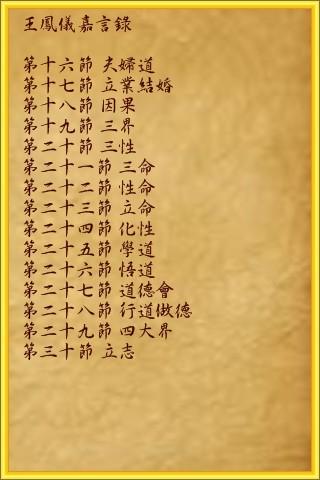 王鳳儀嘉言錄
第十六節 夫婦道
第十七節 立業結婚
第十八節 因果
第十九節 三界
第二十節 三性
第二十一節 三命
第二十二節 性命
第二十三節 立命
第二十四節 化性
第二十五節 學道
第二十六節 悟道
第二十七節 道德會
第二十八節 行道做德
第二十九節 四大界
第三十節 立志